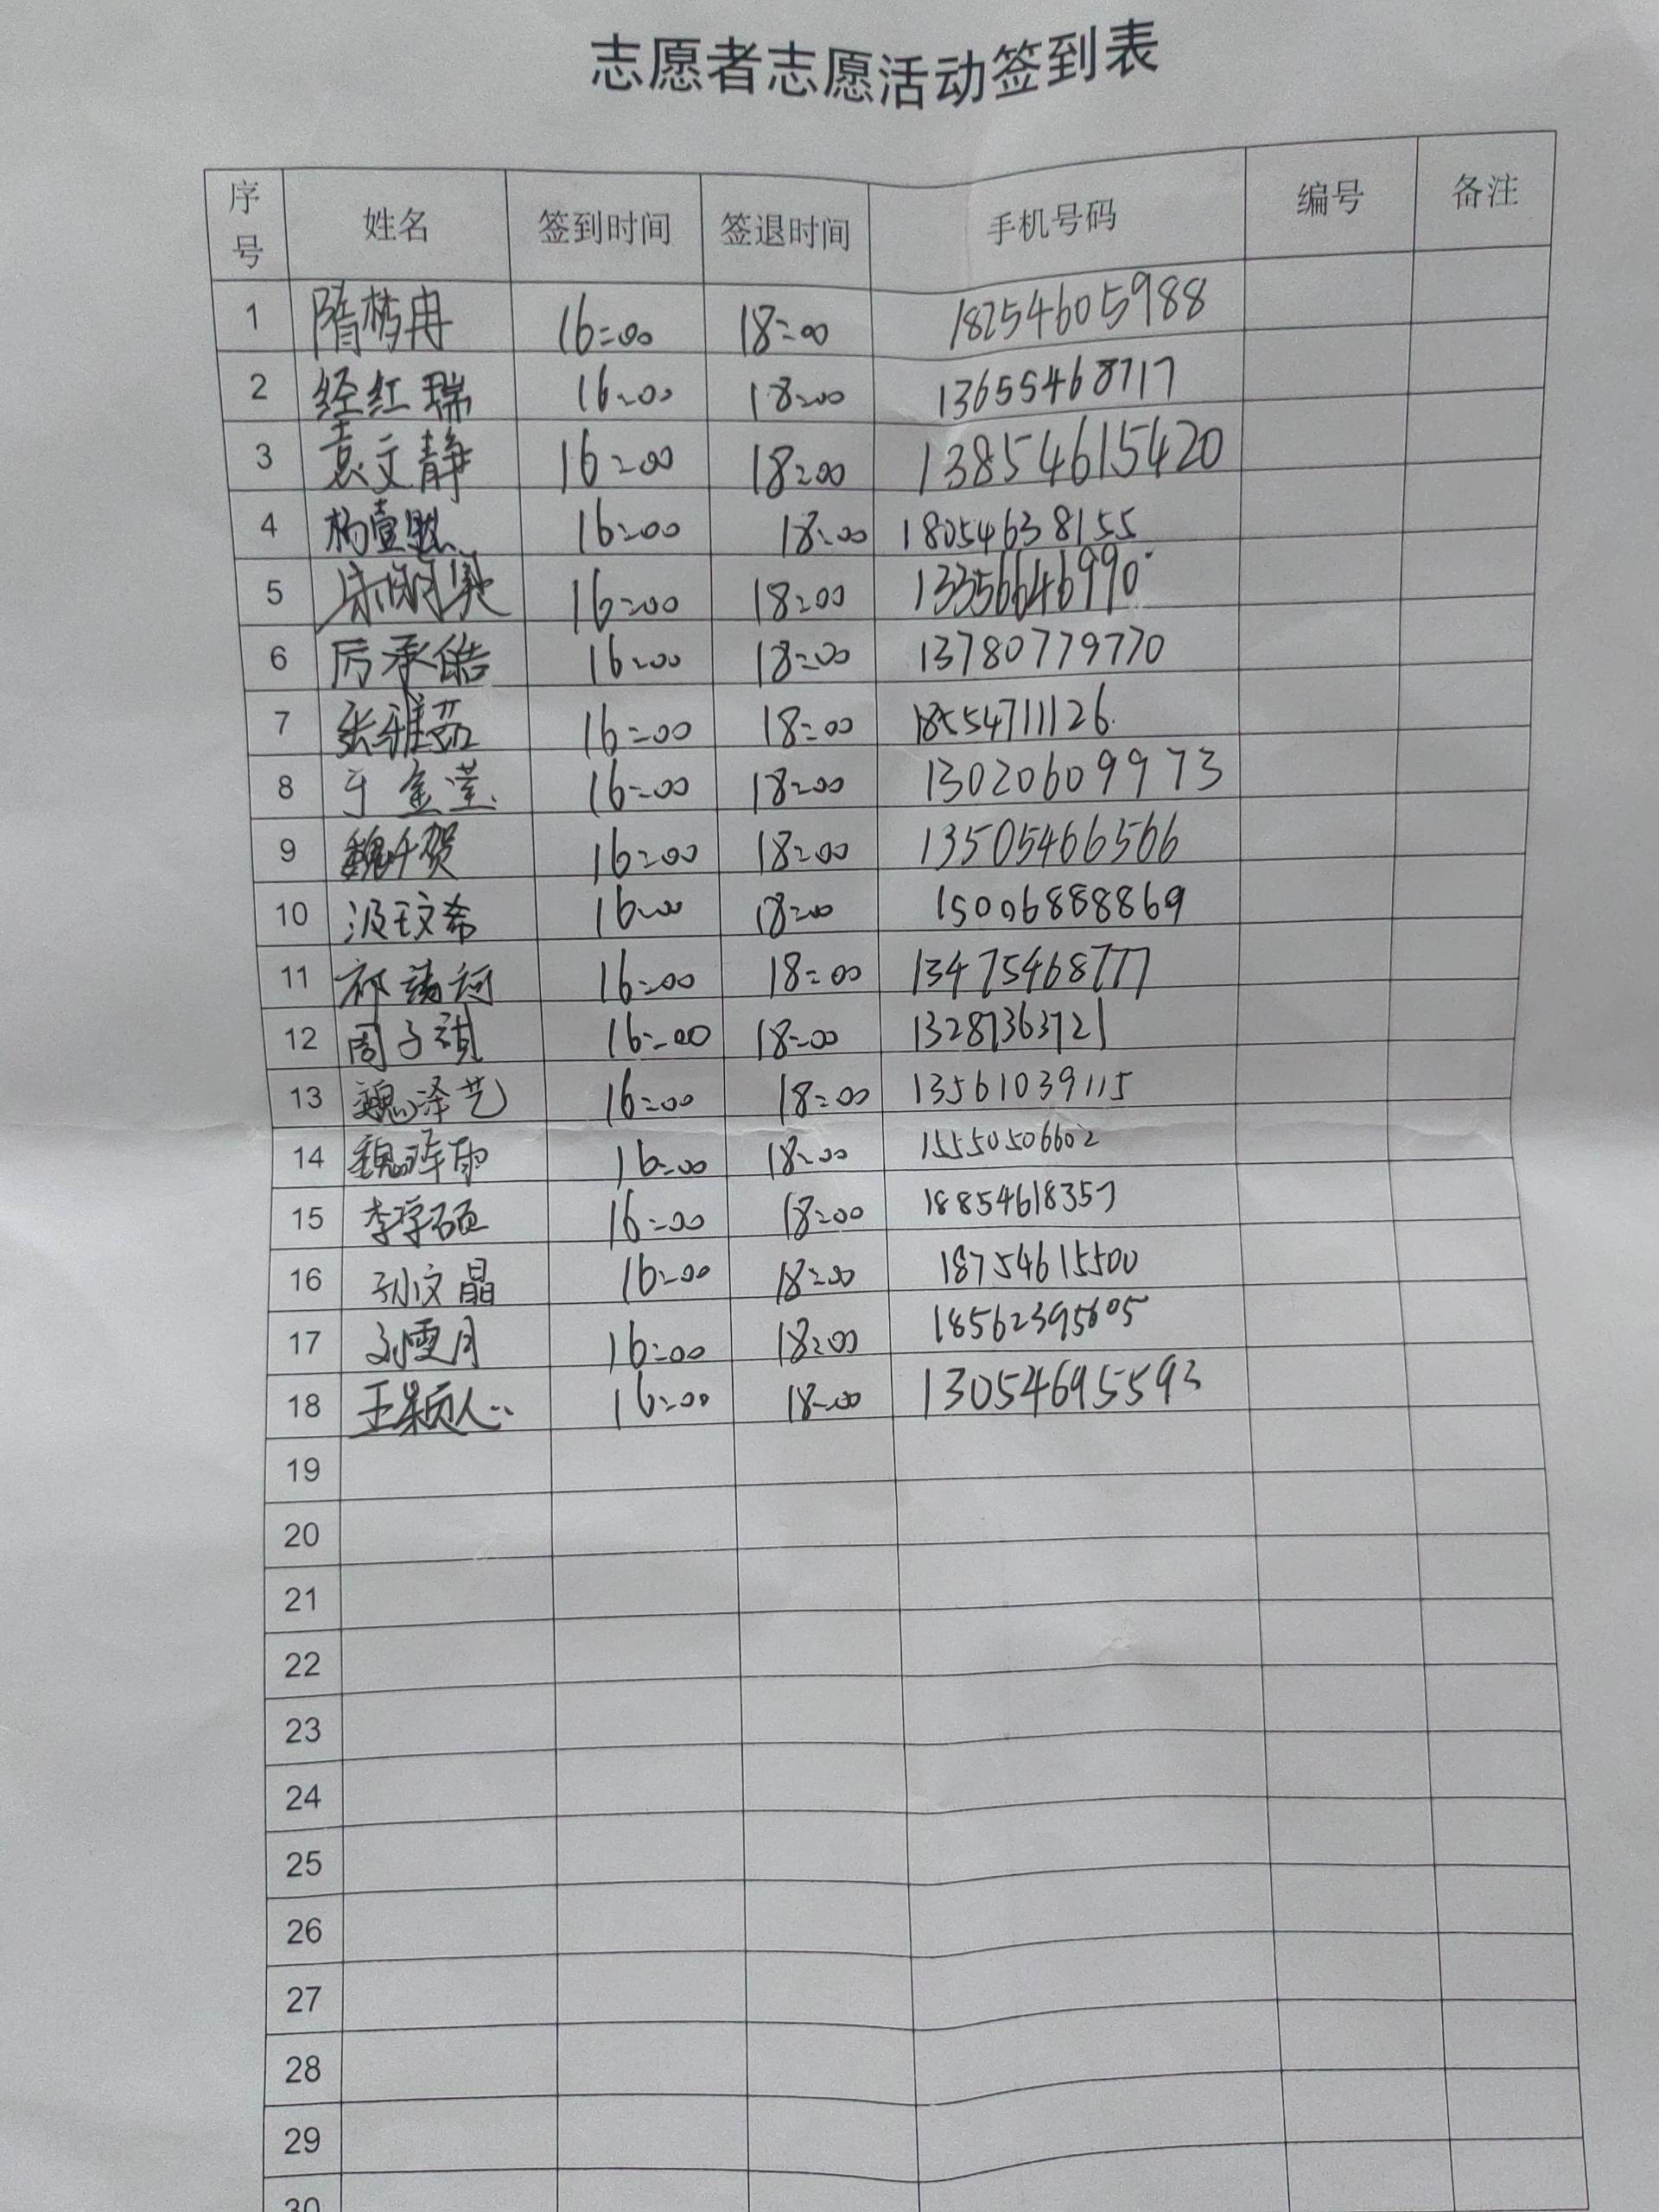 志愿者志愿活动签到表
序号 姓名 签到时间 签退时间 手机号码 编号 备注
1 隋梦冉 16:00 18:00 18254605988
2 经红瑞 16:00 18:00 13655468717
3 袁文静 16:00 18:00 13854615420
4 杨壹 16:00 18:00 18054638155
5 16:00 18:00 13356646990
6 厉承皓 16:00 18:00 13780779770
7 张雅茹 16:00 18:00 18554711126
8 于金滢 16:00 18:00 13020609973
9 魏千贺 16:00 18:00 13505466566
10 汲玟希 16:00 18:00 15006888869
11 祁 16:00 18:00 13475468777
12 周子祺 16:00 18:00 13287363721
13 魏泽艺 16:00 18:00 13561039115
14 魏 雨 16:00 18:00 15550506602
15 李学硕 16:00 18:00 18854618357
16 孙文晶 16:00 18:00 18754615500
17 刘雯月 16:00 18:00 18562395605
18 王颖 16:00 18:00 13054695593
19
20
21
22
23
24
25
26
27
28
29
30